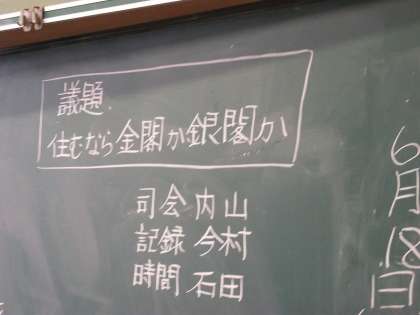 議題.
住むなら金閣か銀閣か
司会 内山
記録 今村
時間 石田
6月18日